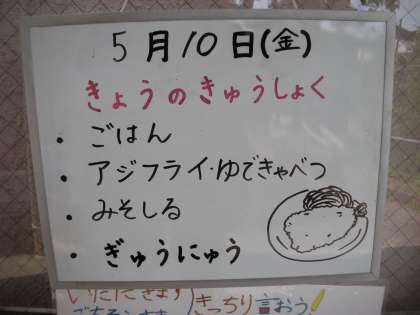 5月10日(金)
きょうのきゅうしょく
・ごはん
・アジフライ・ゆできゃべつ
・みそしる
・ぎゅうにゅう
いただきます
ごちそうさま
きっちり言おう!